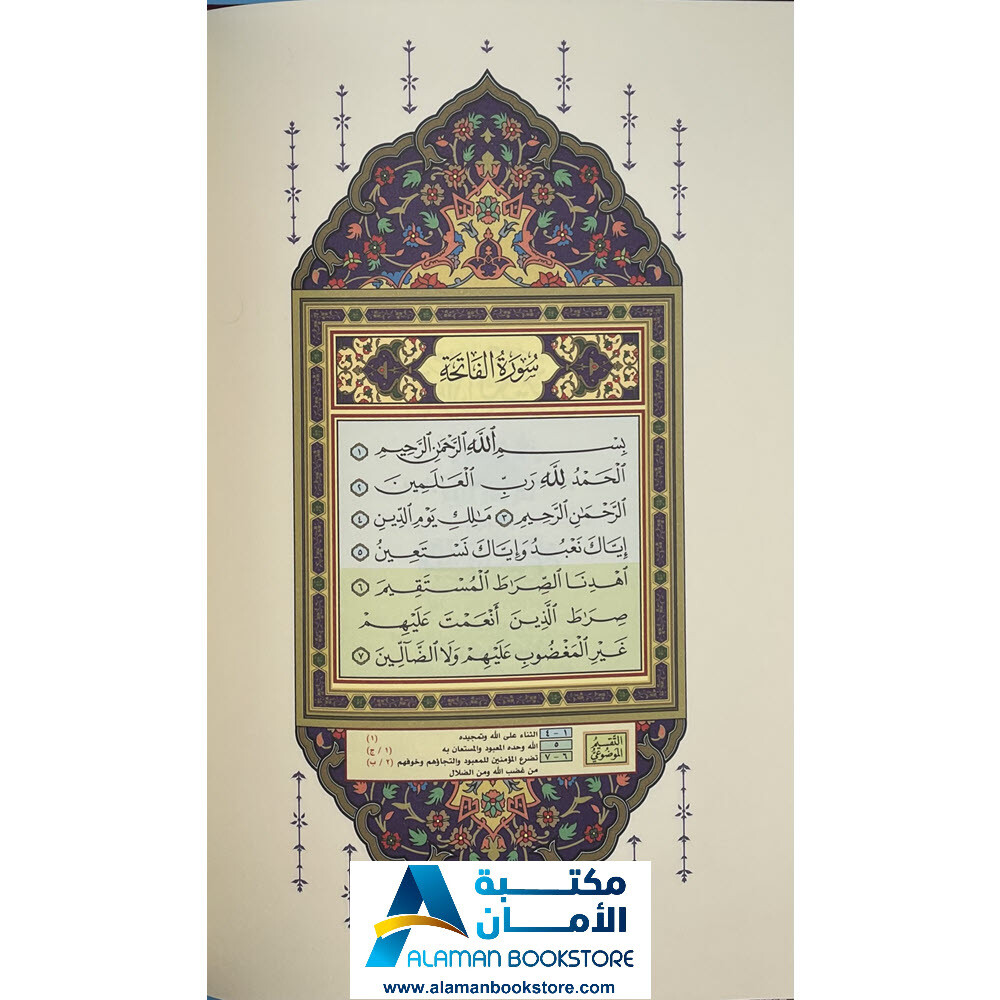 سُورَةُ الفَاتِحَةِ
بِسْمِ ٱللَّهِ ٱلرَّحْمَٰنِ ٱلرَّحِيمِ ١
ٱلْحَمْدُ لِلَّهِ رَبِّ ٱلْعَـٰلَمِينَ ٢
ٱلرَّحْمَٰنِ ٱلرَّحِيمِ ٣ مَـٰلِكِ يَوْمِ ٱلدِّينِ ٤
إِيَّاكَ نَعْبُدُ وَإِيَّاكَ نَسْتَعِينُ ٥
ٱهْدِنَا ٱلصِّرَٰطَ ٱلْمُسْتَقِيمَ ٦
صِرَٰطَ ٱلَّذِينَ أَنْعَمْتَ عَلَيْهِمْ
غَيْرِ ٱلْمَغْضُوبِ عَلَيْهِمْ وَلَا ٱلضَّآلِّينَ ٧
التقسيم الموضوعي
١ - ٤ الثناء على الله وتمجيده (١)
٥ الله وحده المعبود والمستعان به (١ / ج)
٦ - ٧ تضرع المؤمنين للمعبود والتجاؤهم وخوفهم (٢ / ب)
من غضب الله ومن الضلال
مكتبة
الأمان
ALAMAN BOOKSTORE
www.alamanbookstore.com